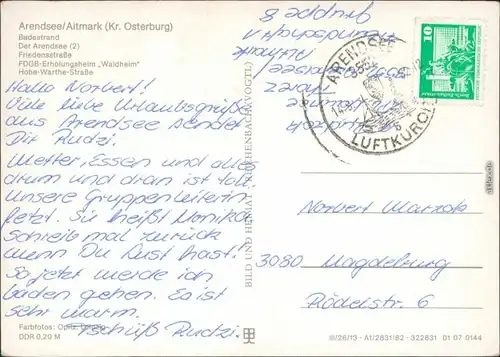 Arendsee/Altmark (Kr. Osterburg)
Badestrand
Der Arendsee (2)
Friedensstraße
FDGB-Erholungsheim „Waldheim"
Hobe-Warthe-Straße
Hallo Norbert!
Viele liebe Urlaubsgrüße
aus Arendsee sendet
Dir Rudzi.
Wetter, Essen und alles
drum und dran ist toll.
Unsere Gruppenleiterin
fetzt. Sie heißt Monika
Schreib mal zurück
wenn Du Lust hast!
So jetzt werde ich
baden gehen. Es ist
sehr warm.
Tschüß Rudzi.
Farbfotos:
DDR 0,20 M
BILD UND HEIMAT REICHENBACH (VOGTL)
Gruppe 8
ARENDSEE
LUFTKURORT
10
Norbert Marzok
3080 Magdeburg
Rödelstr. 6
III/26/13 · A1/2831/82 · 322831 01 07 0144